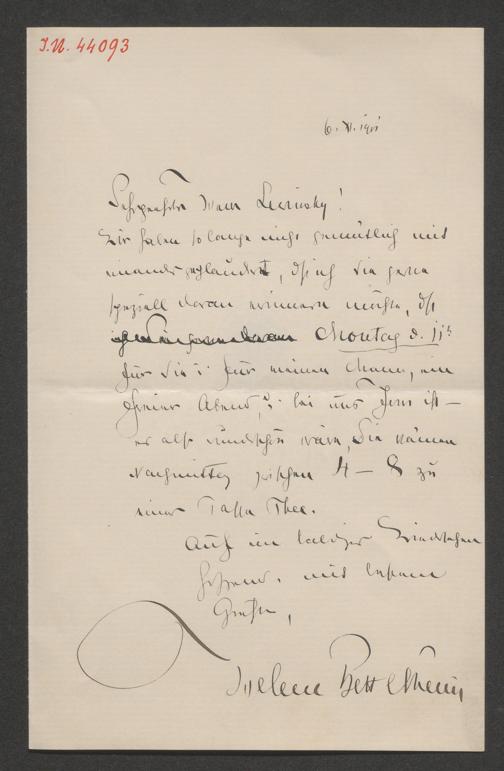 J.N. 44093
6. XI. 1901
Sehr geehrter Herr Lewinsky!
Wir haben so lange nicht gemütlich mit
einander geplaudert, dß ich Sie gerne
speziell daran erinnern möchte, dß
Montag d. 11t
für Sie u. für meinen Mann, ein
freier Abend, u. bei uns Jour ist –
es also wunderschön wäre, Sie kämen
Nachmittag zwischen 4 – 8 zu
einer Tasse Thee.
Auf ein baldiges Wiedersehen
hoffend, mit besten
Grüßen,
Helene Bettelheim